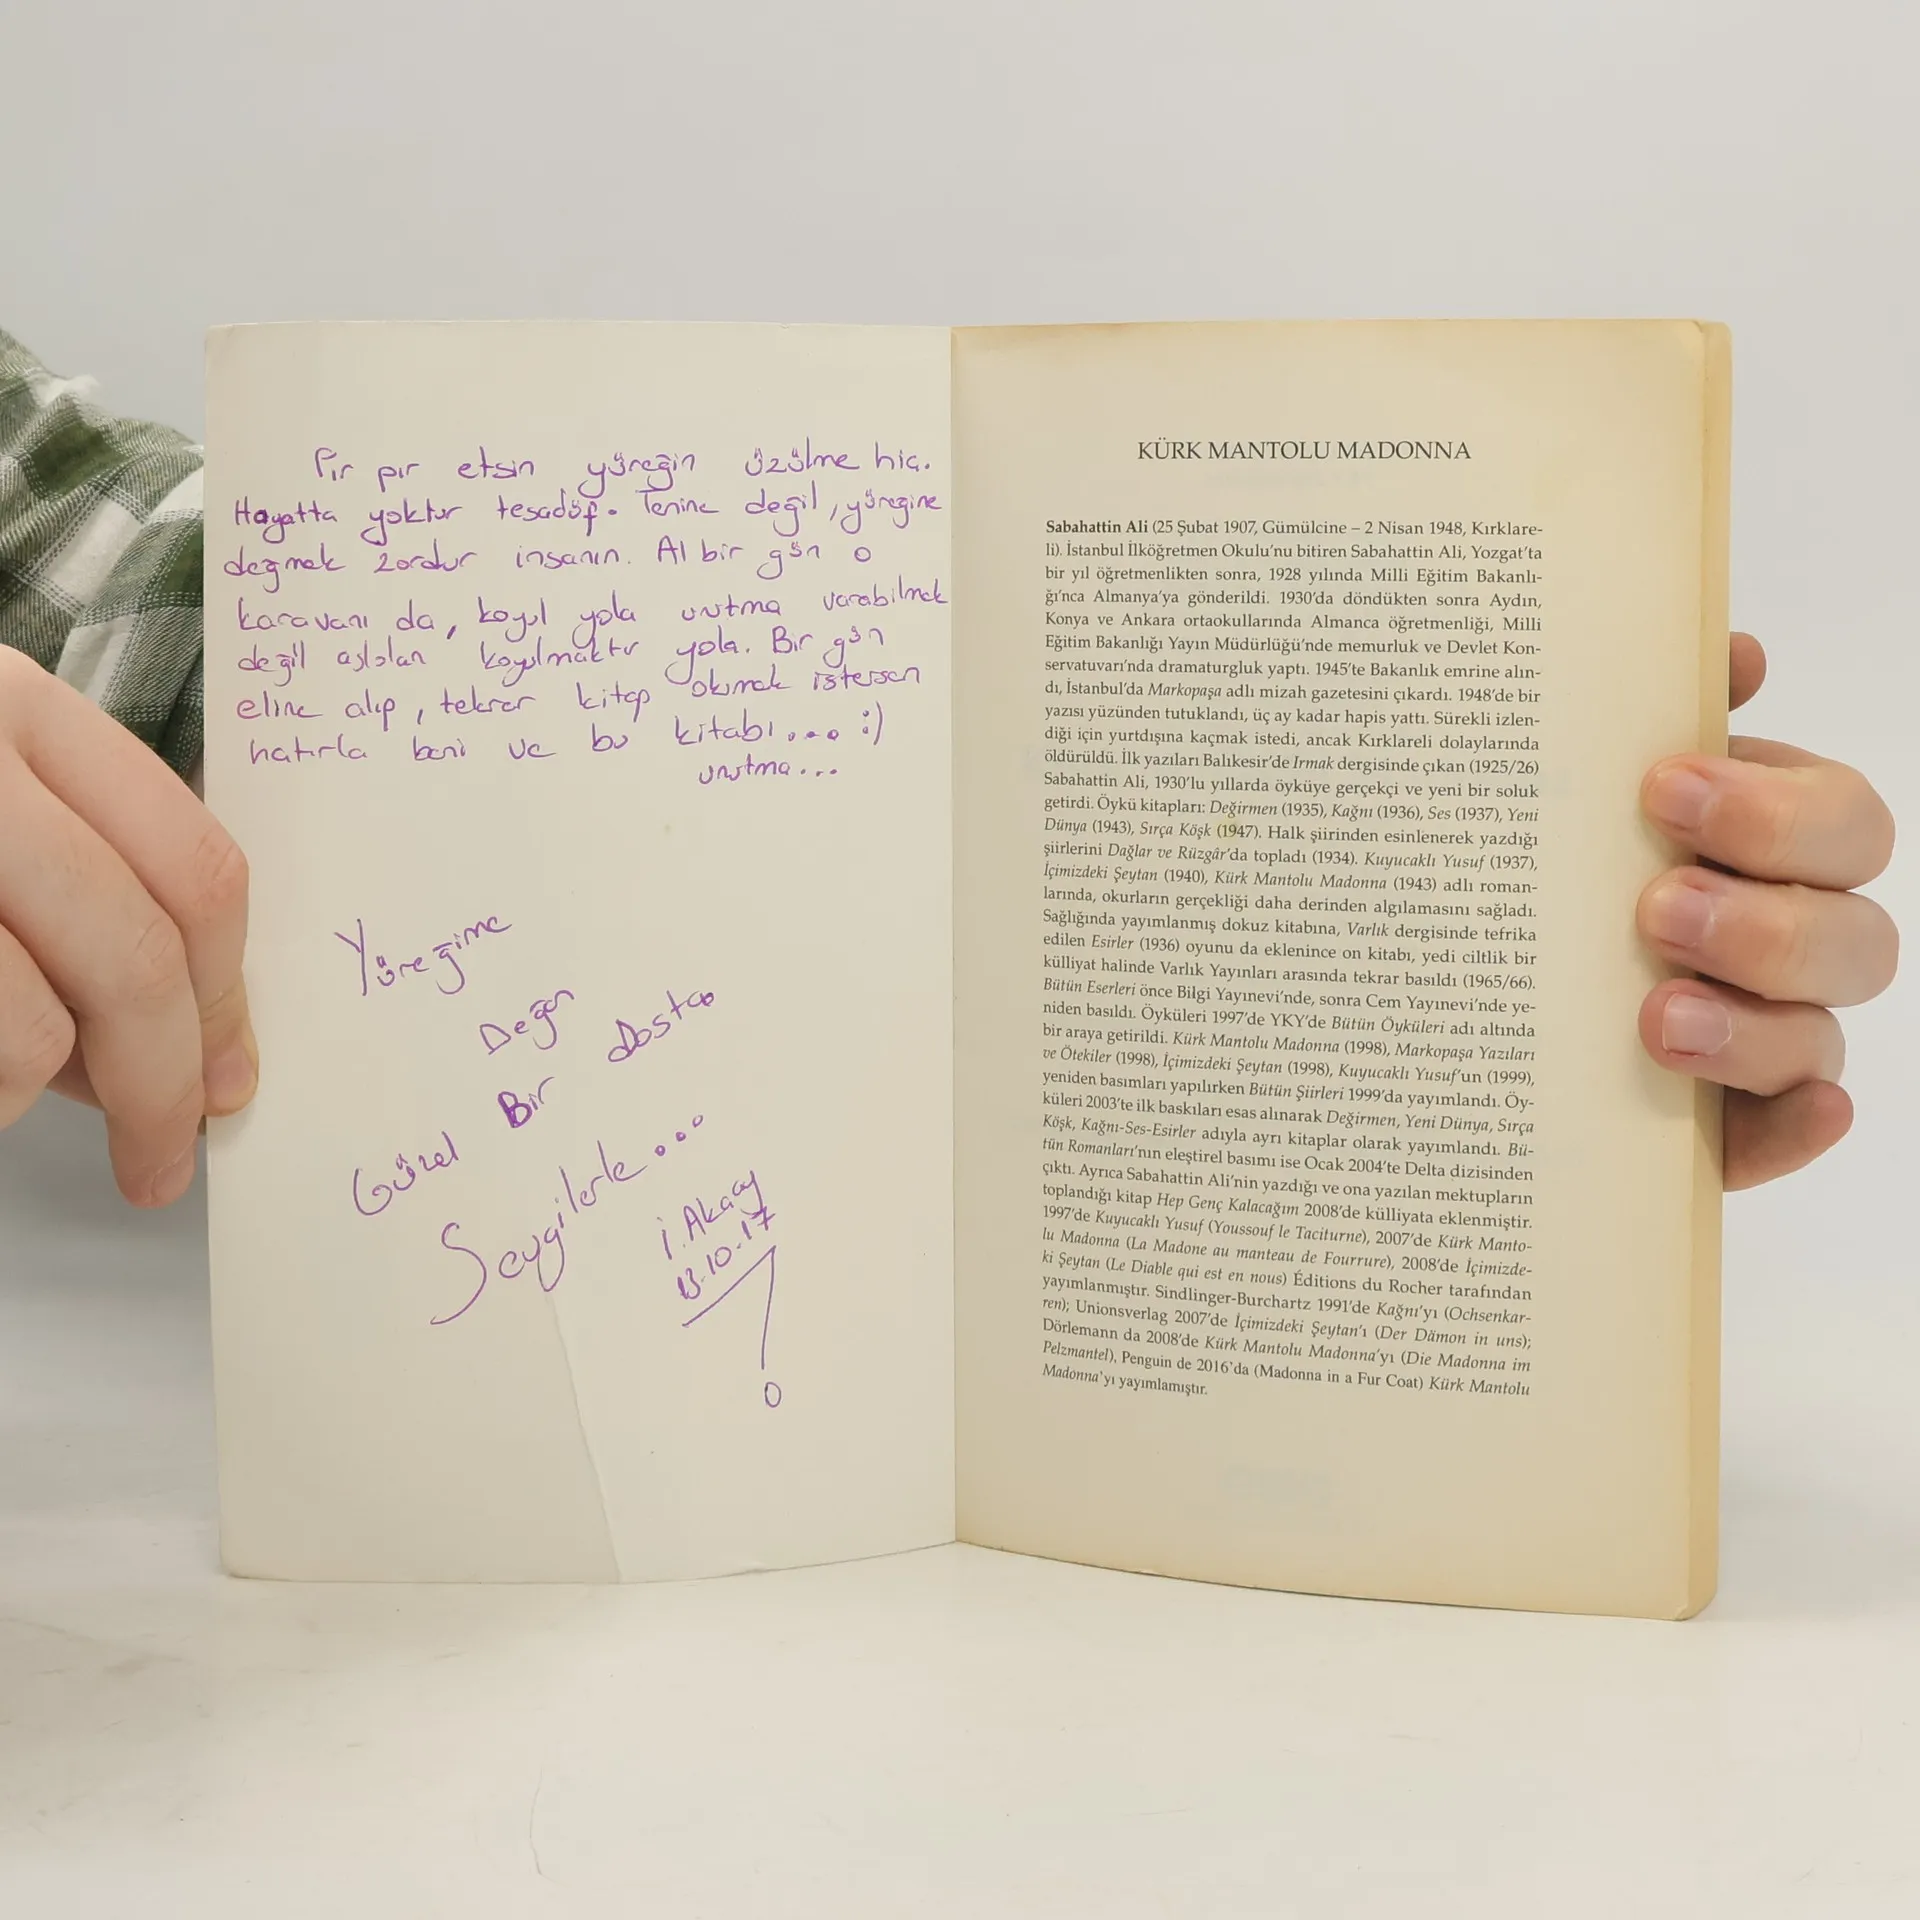 Pır pır etsin yüreğin üzülme hiç.
Hayatta yoktur tesadüf. Tenine değil, yüreğine
değmek zordur insanın. Al bir gün o
karavanı da, koyul yola unutma varabilmek
değil aslolan koyulmaktır yola. Bir gün
eline alıp, tekrar kitap okumak istersen
hatırla beni ve bu kitabı.... :)
unutma...
Yüreğime
Değen
Bir Dosta
Güzel
Sevgilerle...
İ. Akay
13.10.17
KÜRK MANTOLU MADONNA
Sabahattin Ali (25 Şubat 1907, Gümülcine – 2 Nisan 1948, Kırklare-
li). İstanbul İlköğretmen Okulu'nu bitiren Sabahattin Ali, Yozgat'ta
bir yıl öğretmenlikten sonra, 1928 yılında Milli Eğitim Bakanlı-
ğı'nca Almanya'ya gönderildi. 1930'da döndükten sonra Aydın,
Konya ve Ankara ortaokullarında Almanca öğretmenliği, Milli
Eğitim Bakanlığı Yayın Müdürlüğü'nde memurluk ve Devlet Kon-
servatuvarı'nda dramaturgluk yaptı. 1945'te Bakanlık emrine alın-
dı, İstanbul'da Markopaşa adlı mizah gazetesini çıkardı. 1948'de bir
yazısı yüzünden tutuklandı, üç ay kadar hapis yattı. Sürekli izlen-
diği için yurtdışına kaçmak istedi, ancak Kırklareli dolaylarında
öldürüldü. İlk yazıları Balıkesir'de Irmak dergisinde çıkan (1925/26)
Sabahattin Ali, 1930'lu yıllarda öyküye gerçekçi ve yeni bir soluk
getirdi. Öykü kitapları: Değirmen (1935), Kağnı (1936), Ses (1937), Yeni
Dünya (1943), Sırça Köşk (1947). Halk şiirinden esinlenerek yazdığı
şiirlerini Dağlar ve Rüzgâr'da topladı (1934). Kuyucaklı Yusuf (1937),
İçimizdeki Şeytan (1940), Kürk Mantolu Madonna (1943) adlı roman-
larında, okurların gerçekliği daha derinden algılamasını sağladı.
Sağlığında yayımlanmış dokuz kitabına, Varlık dergisinde tefrika
edilen Esirler (1936) oyunu da eklenince on kitabı, yedi ciltlik bir
külliyat halinde Varlık Yayınları arasında tekrar basıldı (1965/66).
Bütün Eserleri önce Bilgi Yayınevi'nde, sonra Cem Yayınevi'nde ye-
niden basıldı. Öyküleri 1997'de YKY'de Bütün Öyküleri adı altında
bir araya getirildi. Kürk Mantolu Madonna (1998), Markopaşa Yazıları
ve Ötekiler (1998), İçimizdeki Şeytan (1998), Kuyucaklı Yusuf'un (1999),
yeniden basımları yapılırken Bütün Şiirleri 1999'da yayımlandı. Öy-
küleri 2003'te ilk baskıları esas alınarak Değirmen, Yeni Dünya, Sırça
Köşk, Kağnı-Ses-Esirler adıyla ayrı kitaplar olarak yayımlandı. Bü-
tün Romanları'nın eleştirel basımı ise Ocak 2004'te Delta dizisinden
çıktı. Ayrıca Sabahattin Ali'nin yazdığı ve ona yazılan mektupların
toplandığı kitap Hep Genç Kalacağım 2008'de külliyata eklenmiştir.
1997'de Kuyucaklı Yusuf (Youssouf le Taciturne), 2007'de Kürk Manto-
lu Madonna (La Madone au manteau de Fourrure), 2008'de İçimizde-
ki Şeytan (Le Diable qui est en nous) Éditions du Rocher tarafından
yayımlanmıştır. Sindlinger-Burchartz 1991'de Kağnı'yı (Ochsenkar-
ren); Unionsverlag 2007'de İçimizdeki Şeytan'ı (Der Dämon in uns);
Dörlemann da 2008'de Kürk Mantolu Madonna'yı (Die Madonna im
Pelzmantel), Penguin de 2016'da (Madonna in a Fur Coat) Kürk Mantolu
Madonna'yı yayımlamıştır.